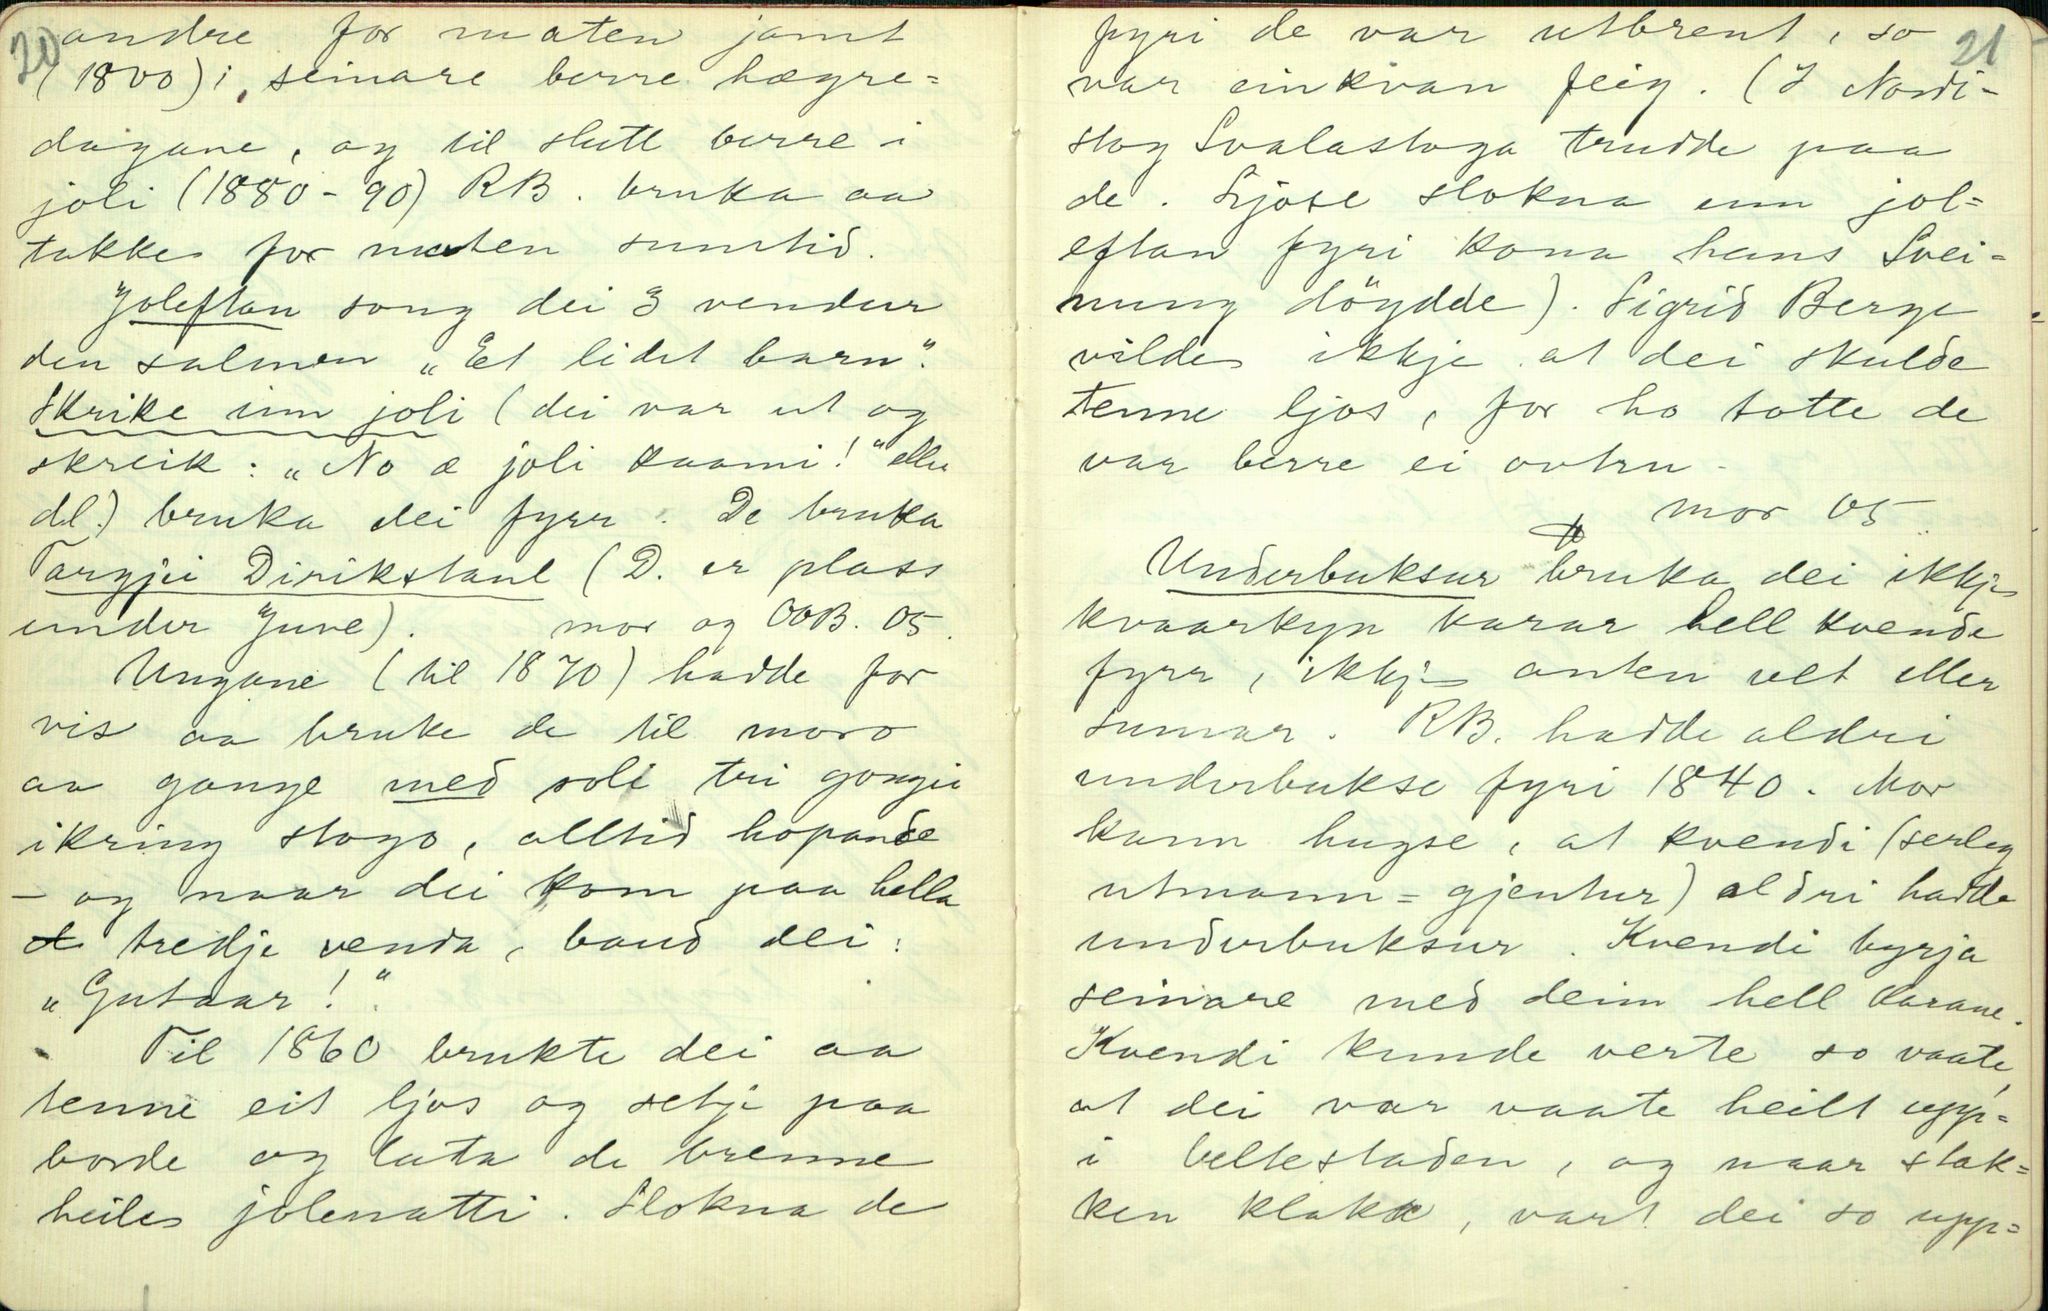 20
andre for maten jamt
(1800); seinare berre hægre-
dagane, og til slutt berre i
joli (1880-90) RB. bruka aa
takke for maten sumtid.
Joleftan song dei 3 vendur
den salmen "Et lidet barn".
Skrike inn joli (dei var ut og
skreik: "No æ joli kaami!" eller
dl.) bruka dei fyrr. De bruka
Targjei Dirikstaul (D. er plass
under Juve). mor og OOB. 05.
Ungane (til 1870) hadde for
vis aa bruke de til moro
aa gange med soli tri gongir
ikring stogo, alltid hopande
- og naar dei kom paa hella
tredje venda, baud dei:
"Gutaar!"
Til 1860 brukte dei aa
tenne eit ljos og setje paa
borde og lata de brenne
heile jolenatti. Slokna de
21
fyri de var utbrent, so
var einkvan feig. (I Nordi-
stog Svalastoga trudde paa
de. Ljose slokna enn jol-
eftan fyri kona hans Svei-
nung döydde). Sigrid Berge
vilde ikkje at dei skulde
tenne ljos, for ho totte de
var berre ei ovtru.
mor 05
Underbuksur bruka dei ikkje
kvaarkyn karar hell kvende
fyrr, ikkje anten vet eller
sumar. RB. hadde aldri
underbukse fyri 1840. Mor
kann hugse, at kvendi (serleg
utmann-gjentur) aldri hadde
underbuksur. Kvendi byrja
seinare med deim hell karane.
Kvendi kunde verte so vaate,
at dei var vaate heilt upp-
i beltestaden, og naar stak-
ken klaka, vart dei so upp-